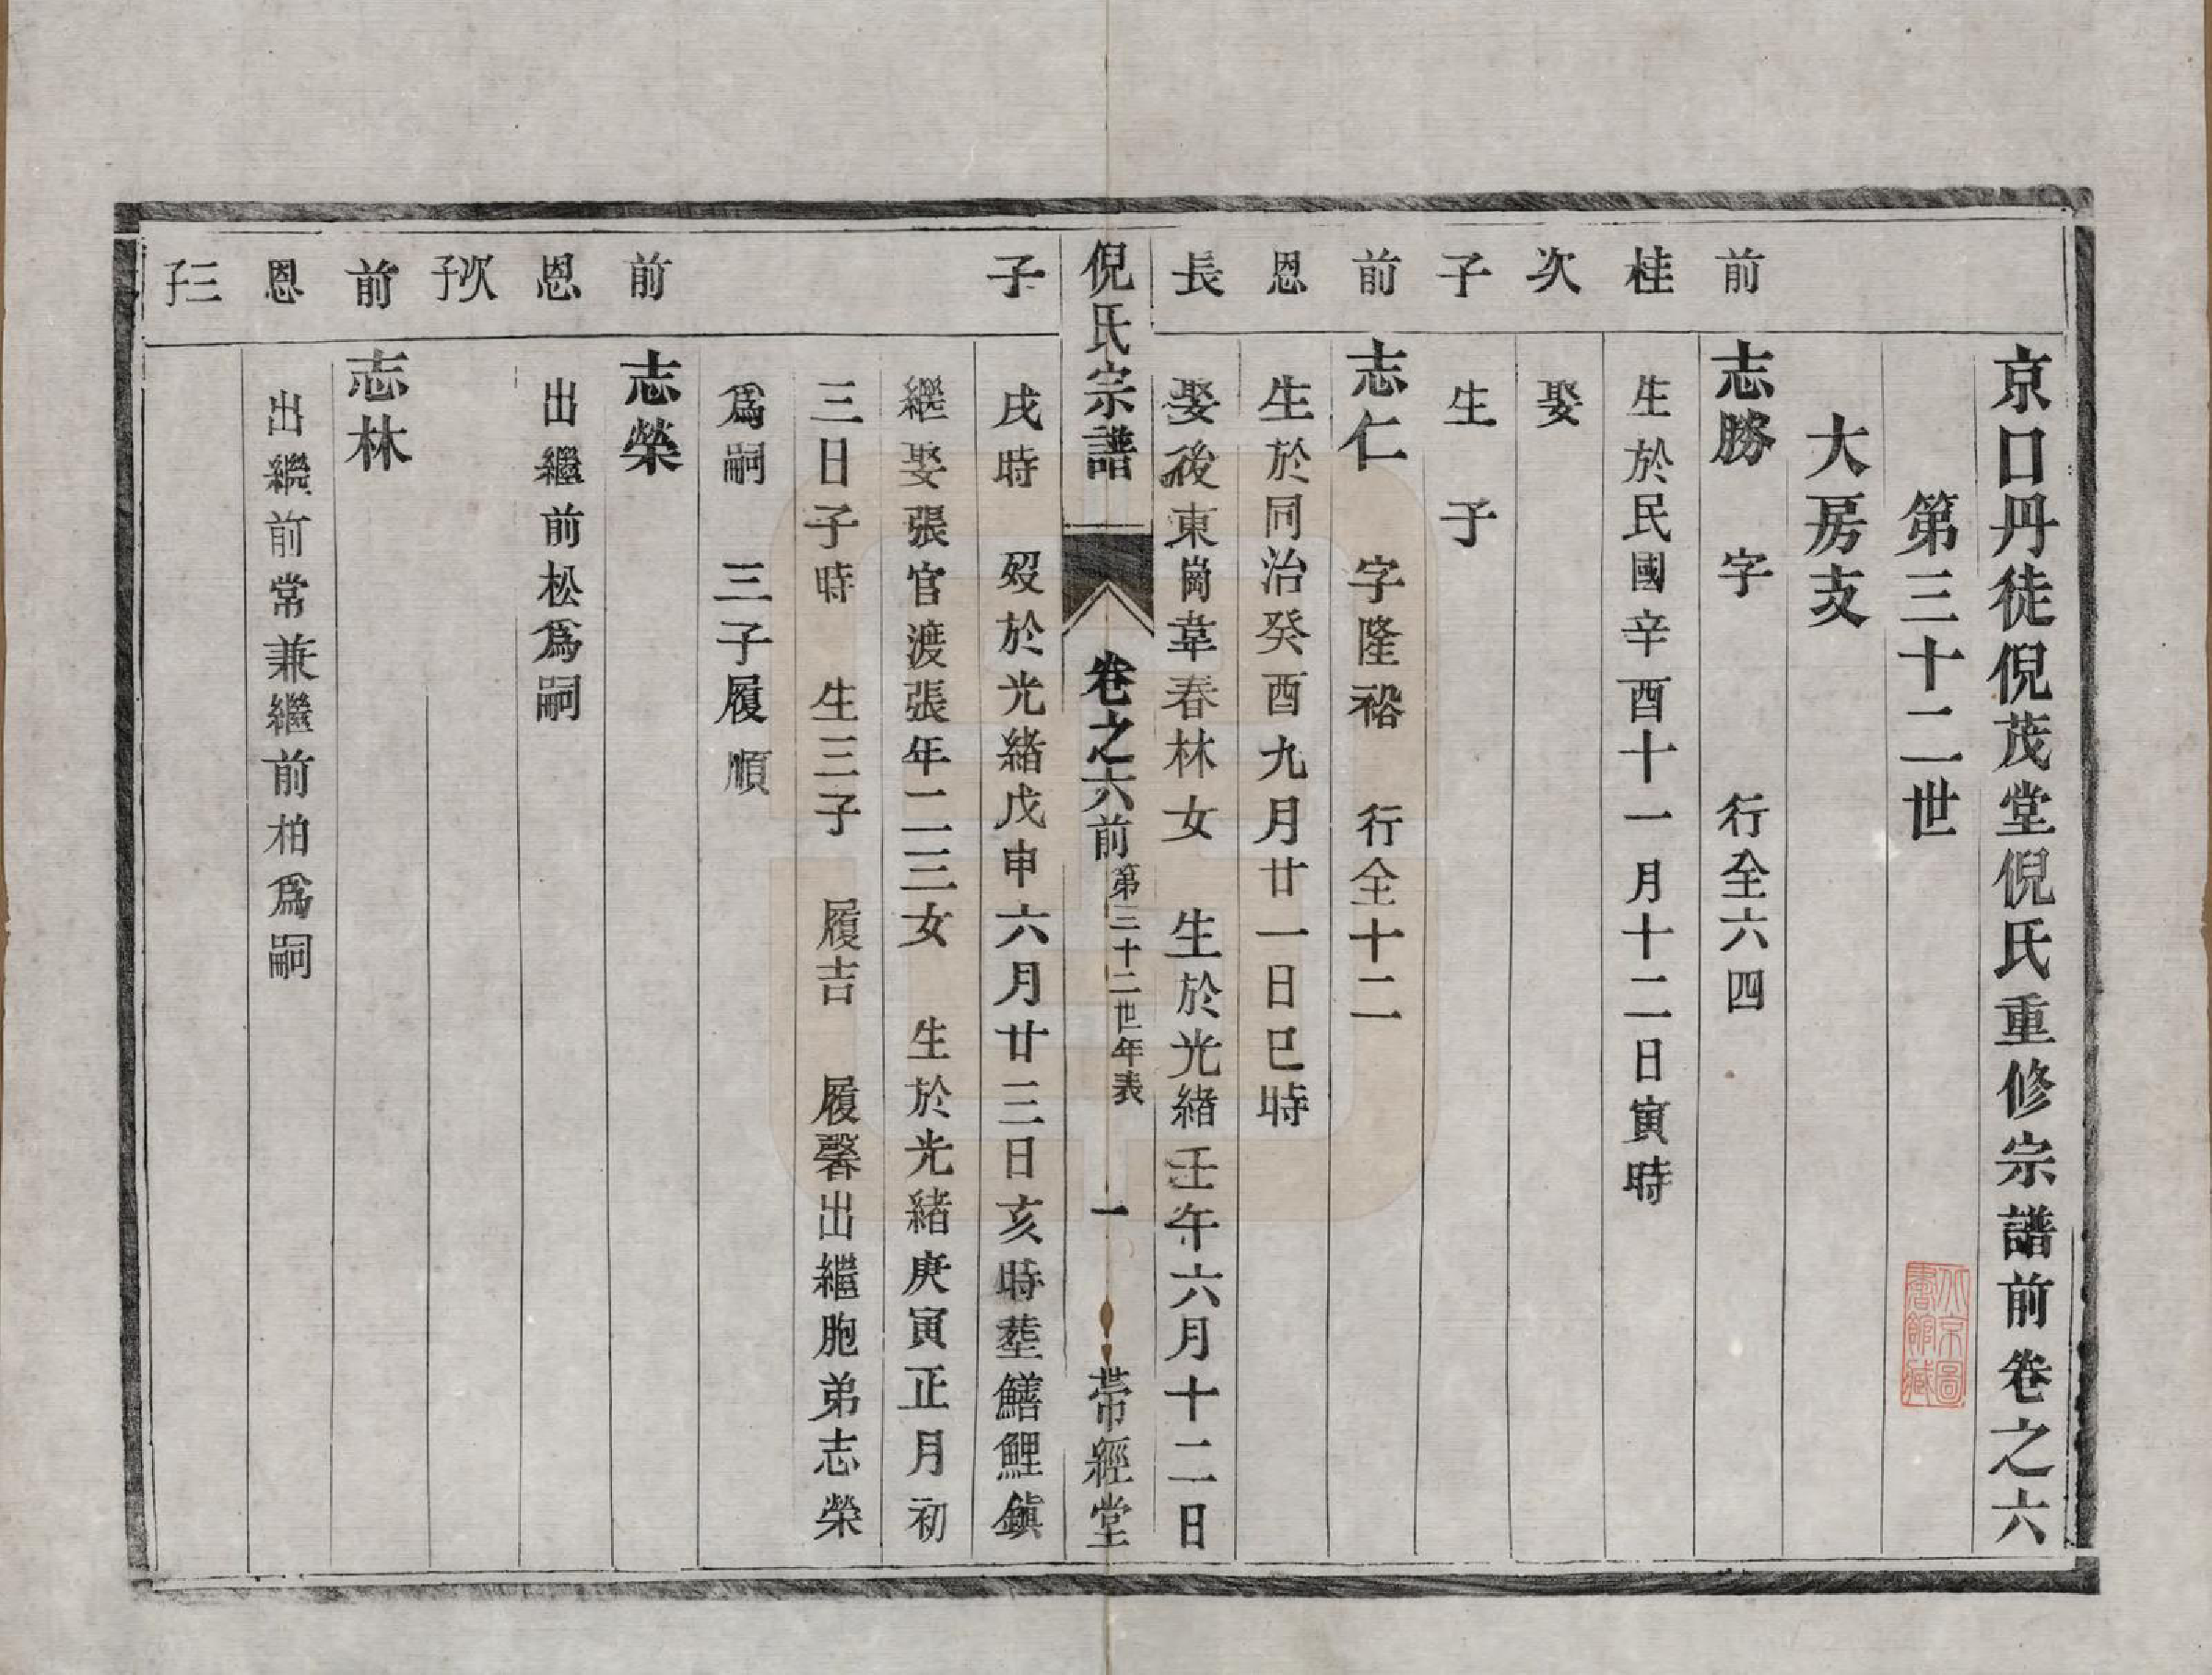 京口丹徒倪茂堂倪氏重修宗譜前卷之六
第三十二世
大房支
前
志勝 字 行全六四
桂
生於民國辛酉十一月十二日寅時
次
娶
子
生 子
前
志仁 字隆裕 行全十二
恩
生於同治癸酉九月廿一日巳時
長
娶後東崗韋春林女 生於光緒壬午六月十二日
倪氏宗譜
卷之六前
第三十二世年表
一
帶經堂
子
戌時 歿於光緒戊申六月廿三日亥時塟鱔鯉鎮
繼娶張官渡張年二三女 生於光緒庚寅正月初
三日子時 生三子 履吉 履馨出繼胞弟志榮
爲嗣 三子履順
前
志榮
恩
出繼前松爲嗣
次子
前
志林
恩
出繼前常兼繼前柏爲嗣
三子
北京圖
書館藏